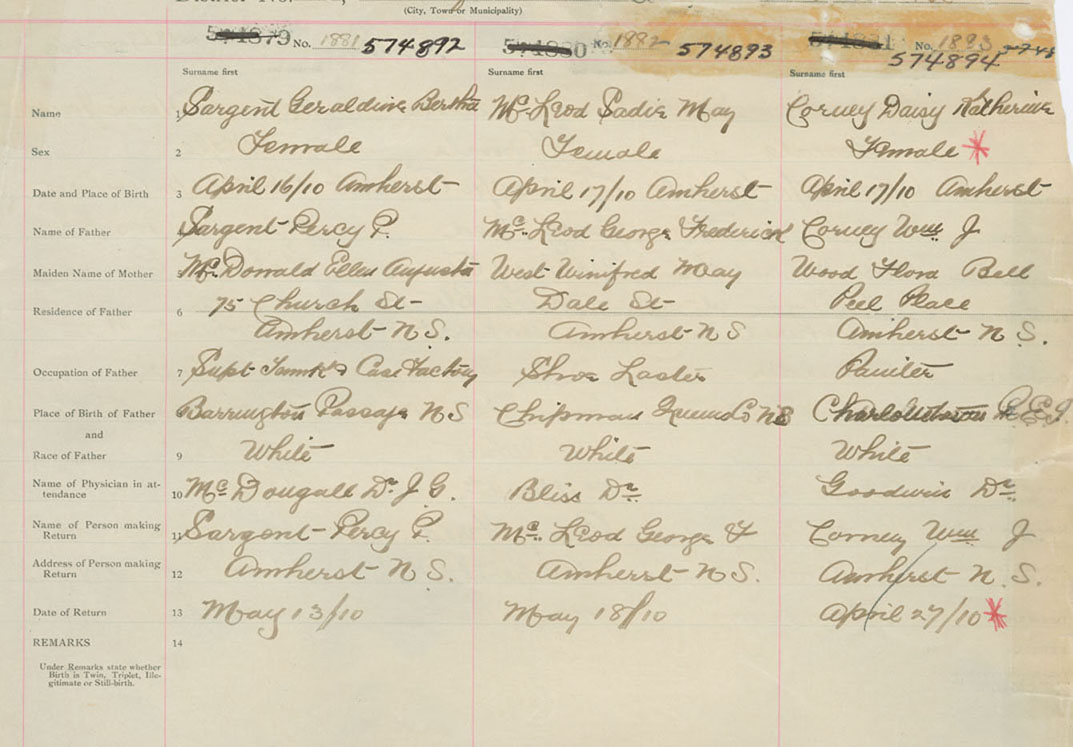 (City, Town or Municipality)
No. 1881 574892 No. 1882 574893 No. 1893 574894
Surname first Surname first Surname first
Name 1 Sargent Geraldine Bertha McLeod Sadie May Corney Daisy Katherine
Sex 2 Female Female Female
Date and Place of Birth 3 April 16/10 Amherst April 17/10 Amherst April 17/10 Amherst
Name of Father Sargent Percy P. McLeod George Frederick Corney Wm J
Maiden Name of Mother McDonald Ellen Augusta West Winifred May Wood Flora Bell
Residence of Father 6 75 Church St Dale St Peel Place
Amherst N.S. Amherst N S Amherst N S.
Occupation of Father 7 Supt Case Factory Shoe Laster Painter
Place of Birth of Father Barrington Passage N S Chipman Queens Co NB Charlottetown P.E.I.
and
Race of Father 9 White White White
Name of Physician in at-
tendance 10 McDougall Dr. J. G. Bliss Dr. Goodwin Dr.
Name of Person making
Return 11 Sargent Percy P. McLeod George F Corney Wm J
Address of Person making
Return 12 Amherst N S. Amherst N S. Amherst N. S.
Date of Return 13 May 13/10 May 18/10 April 27/10
REMARKS 14
Under Remarks state whether
Birth is Twin, Triplet, Ille-
gitimate or Still-birth.